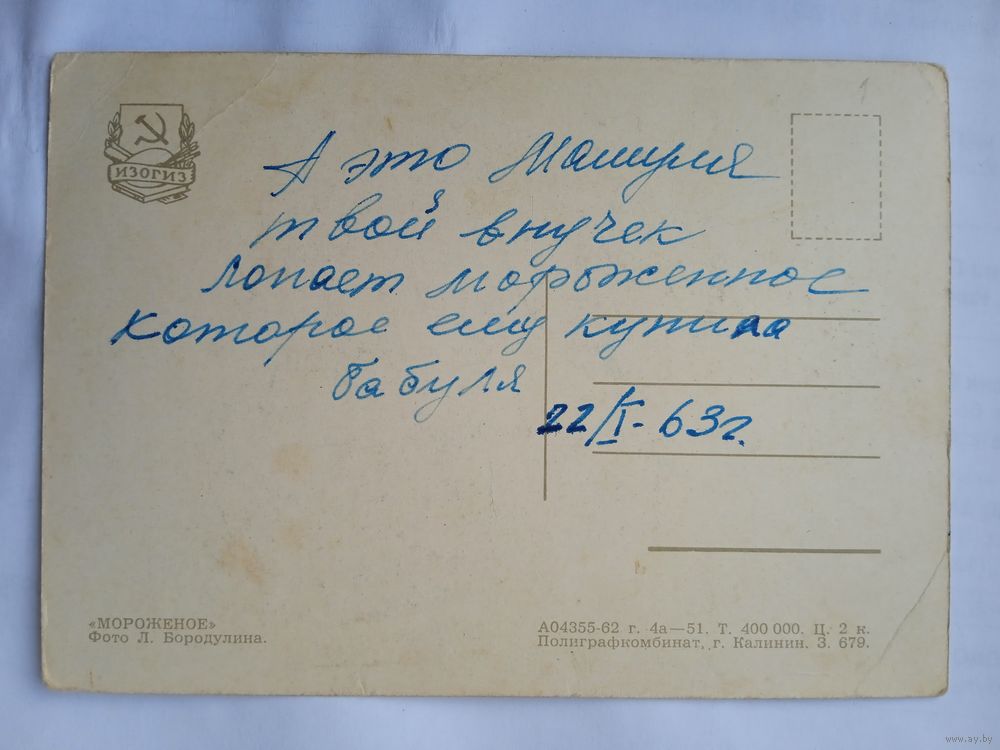 ИЗОГИЗ
1
А это Мамуля
твой внучек
лопает мороженное
которое ему купила
бабуля
22/I-63г.
«МОРОЖЕНОЕ»
Фото Л. Бородулина.
А04355-62 г. 4а—51. Т. 400 000. Ц. 2 к.
Полиграфкомбинат, г. Калинин. З. 679.
www.ay.by